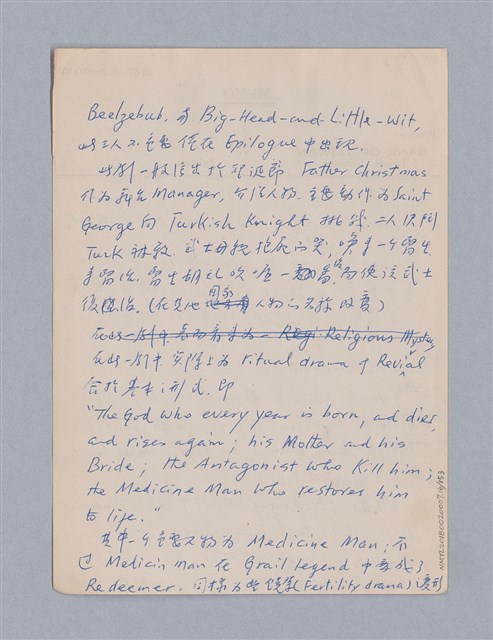 Beelzebub, 或 Big-Head-and-Little-Wit,
此三人不重要僅在 Epilogue 中出現.
此劇一般演出於聖誕節 Father Christmas
作為 Manager, 介紹人物. 主要動作為 Saint
George 向 Turkish Knight 挑戰. 二人決鬥
Turk 被殺. 武士母親抱屍而哭, 喚來一醫生
醫治. 醫生胡亂吹嘘一番, 而使該武士
復活. (在其他國家人物名稱改變)
在此一劇中 表面看來為 Religious Mystery
在此一劇中, 實際上為 ritual drama of Revival
合於基本形式, 即
"The God who every year is born, and dies,
and rises again; his Mother and his
Bride; the Antagonist who kill him;
the Medicine Man who restores him
to life."
其中一主要人物為 Medicine Man; 不
过 Medicin man 在 Grail legend 中變成了
Redeemer. 同樣為豐饒祭 (Fertility drama) 之變形